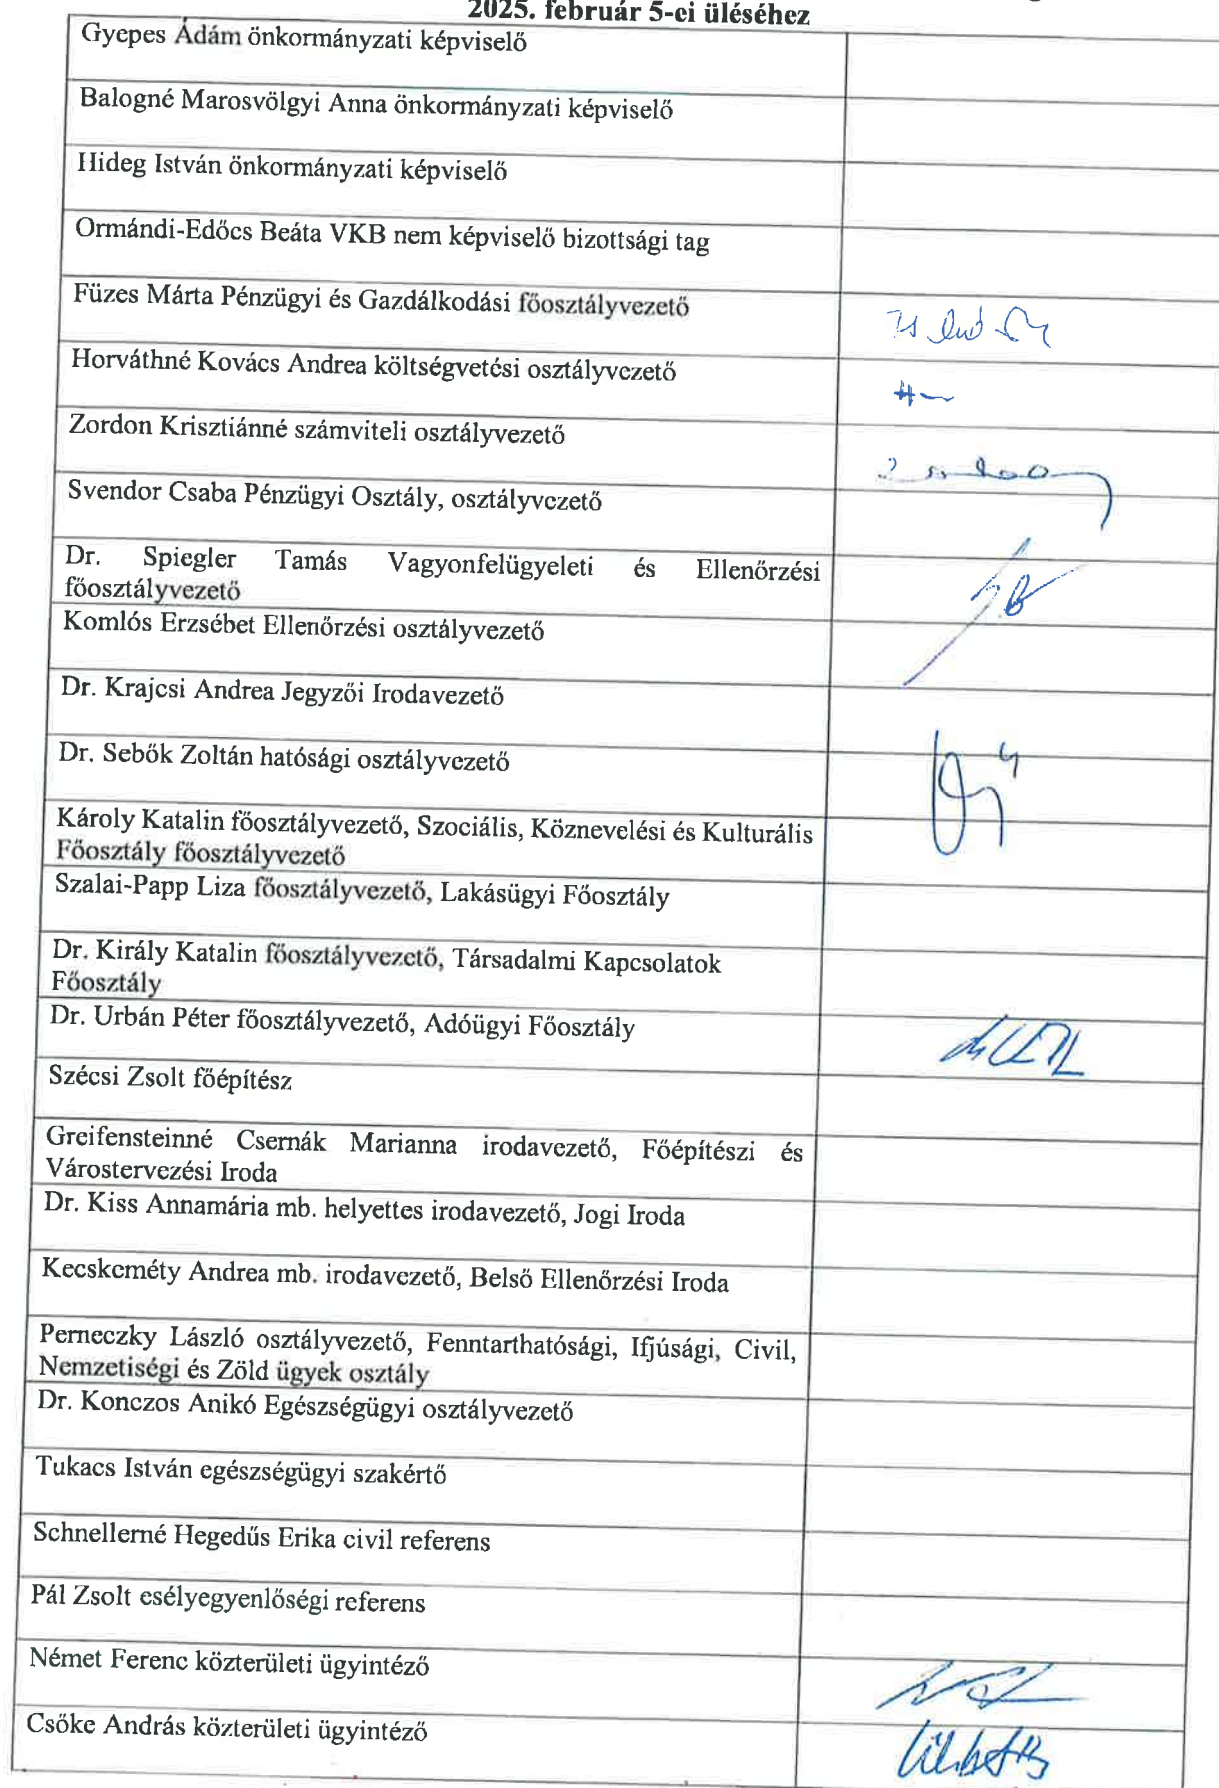 2025. február 5-ei üléséhez
Gyepes Ádám önkormányzati képviselő
Balogné Marosvölgyi Anna önkormányzati képviselő
Hideg István önkormányzati képviselő
Ormándi-Edőcs Beáta VKB nem képviselő bizottsági tag
Füzes Márta Pénzügyi és Gazdálkodási főosztályvezető
Horváthné Kovács Andrea költségvetési osztályvezető
Zordon Krisztiánné számviteli osztályvezető
Svendor Csaba Pénzügyi Osztály, osztályvezető
Dr. Spiegler Tamás Vagyonfelügyeleti és Ellenőrzési
főosztályvezető
Komlós Erzsébet Ellenőrzési osztályvezető
Dr. Krajcsi Andrea Jegyzői Irodavezető
Dr. Sebők Zoltán hatósági osztályvezető
Károly Katalin főosztályvezető, Szociális, Köznevelési és Kulturális
Főosztály főosztályvezető
Szalai-Papp Liza főosztályvezető, Lakásügyi Főosztály
Dr. Király Katalin főosztályvezető, Társadalmi Kapcsolatok
Főosztály
Dr. Urbán Péter főosztályvezető, Adóügyi Főosztály
Szécsi Zsolt főépítész
Greifensteinné Csernák Marianna irodavezető, Főépítészi és
Várostervezési Iroda
Dr. Kiss Annamária mb. helyettes irodavezető, Jogi Iroda
Kecskeméty Andrea mb. irodavezető, Belső Ellenőrzési Iroda
Perneczky László osztályvezető, Fenntarthatósági, Ifjúsági, Civil,
Nemzetiségi és Zöld ügyek osztály
Dr. Konczos Anikó Egészségügyi osztályvezető
Tukacs István egészségügyi szakértő
Schnellerné Hegedűs Erika civil referens
Pál Zsolt esélyegyenlőségi referens
Német Ferenc közterületi ügyintéző
Csőke András közterületi ügyintéző